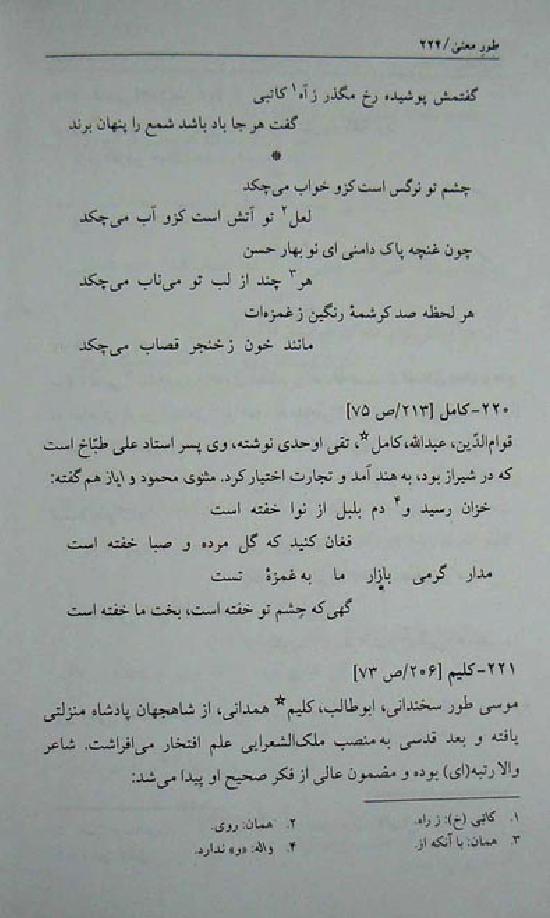 طور معنی / ۲۲۴
گفتمش پوشیده رخ مگذر ز آه۱ کاتبی
گفت هر جا باد باشد شمع را پنهان برند
*
چشم تو نرگس است کزو خواب می‌چکد
لعل۲ تو آتش است کزو آب می‌چکد
چون غنچه پاک دامنی ای نو بهار حسن
هر۳ چند از لب تو می‌ناب می‌چکد
هر لحظه صد کرشمهٔ رنگین ز غمزه‌ات
مانند خون ز خنجر قصاب می‌چکد
۲۲۰-کامل [۲۱۳/ص ۷۵]
قوام‌الدّین، عبدالله، کامل☆، تقی اوحدی نوشته، وی پسر استاد علی طبّاخ است
که در شیراز بود، به هند آمد و تجارت اختیار کرد. مثنوی محمود و ایاز هم گفته:
خزان رسید و۴ دم بلبل از نوا خفته است
فغان کنید که گل مرده و صبا خفته است
مدار گرمی بازار ما به غمزهٔ تست
گهی که چشم تو خفته است، بخت ما خفته است
۲۲۱-کلیم [۲۰۶/ص ۷۳]
موسی طور سخندانی، ابوطالب، کلیم☆ همدانی، از شاهجهان پادشاه منزلتی
یافته و بعد قدسی به‌منصب ملک‌الشعرایی علم افتخار می‌افراشت. شاعر
والا رتبه(ای) بوده و مضمون عالی از فکر صحیح او پیدا می‌شد:
۱. کاتبی (خ): ز راه. ۲. همان: روی.
۳. همان: با آنکه از. ۴. واله: «و» ندارد.